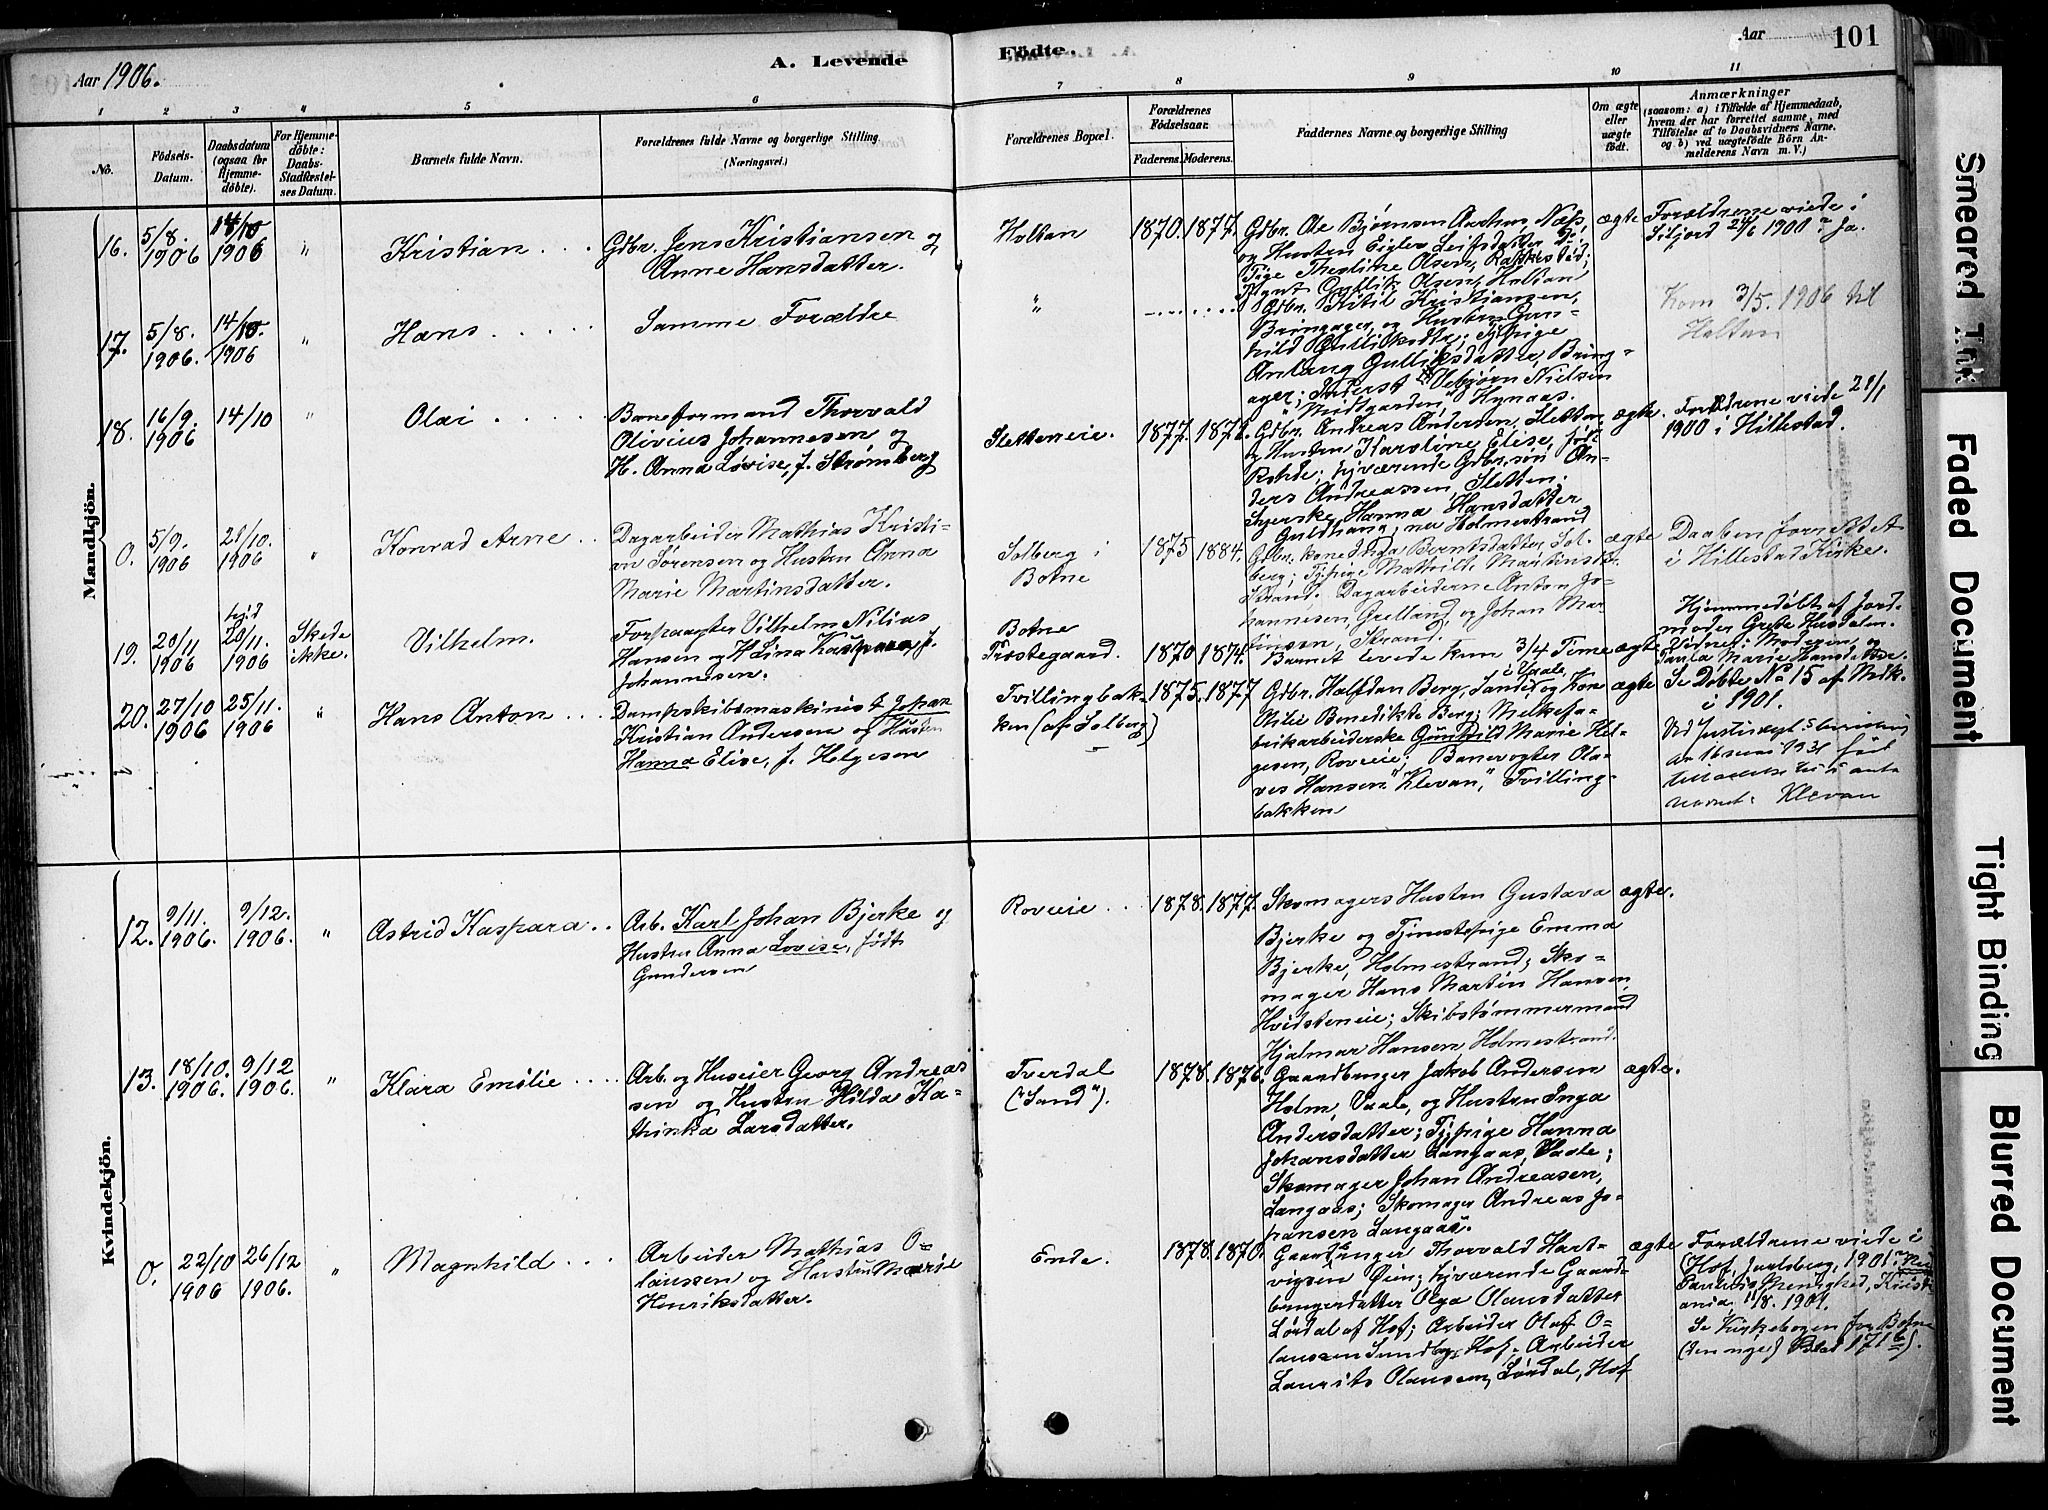 Aar 1906.
A. Levende
Födte.
Aar
101
1
2
3
4
5
6
7
8
9
10
11
No.
Födsels-
Datum.
Daabsdatum
(ogsaa for
Hjemme-
döbte).
For Hjemme-
döbte:
Daabs-
Stadfæstel-
ses Datum.
Barnets fulde Navn.
Forældrenes fulde Navne og borgerlige Stilling
(Næringsvei.)
Forældrenes Bopæl.
Forældrenes
Födselsaar.
Faderens. Moderens.
Faddernes Navne og borgerlige Stilling
Om ægte
eller
uægte
födt.
Anmærkninger
(saasom: a) i Tilfælde af Hjemmedaab,
hvem der har forrettet samme, med
Tilföielse af to Daabsvidners Navne.
og b) ved uægtefödte Börn An-
melderens Navn m. V.)
Mandkjön.
16.
5/8.
1906
14/10
1906
"
Kristian
Gdbr. Jens Kristiansen og
Anne Hansdatter.
Holtan
1870. 1877.
Gdbr. Ole Bjørnsen Aarhus, Næs,
og Hustru Eiglev Leifsdatter
Pige Theoline Olsen, Rakkestad;
Gullik Olsen, Holtan
ægte
Forældrene viede i
Siljord 24/6 1900? Ja.
17.
5/8.
1906.
14/10.
1906
"
Hans
Samme Forældre
"
Gdbr. Kitil Kristiansen,
Bringager, og Hustru Gun-
hild Gulliksdtr; Tjpige
Anlaug Gulliksdatter, Bring-
ager; Inderst Vebjørn Nielsen
"Midtgarden" Hynaas.
Kom 3/5. 1906 til
Holtan
18.
16/9.
1906
14/10
"
Olai
Baneformand Thorvald
Olivius Johannesen og
H. Anna Lovise, f. Strømberg
Sletteneie.
1877.
Gdbr. Andreas Andersen, Sletten,
og Hustru Karoline Elise, født
Rohde; hjværende Gdbr.søn An-
ders Andreassen, Sletten.
Syerske Hanna Hansdatter
Guldhaug, nu Holmestrand
ægte.
Forældrene viede 21/1
1900 i Hillestad.
0.
5/9.
1906
21/10.
1906
"
Konrad Arne
Dagarbeider Mathias Kristi-
an Sørensen og Hustru Anna
Marie Martinsdatter.
Solberg i
Botne
1875 1884.
Gdbr. kone Inga Berntsdatter, Sol-
berg; Tjpige Mathilde Martinsdtr.
Strand; Dagarbeiderne Anton Jo-
hannesen, Grelland, og Johan Mar-
tinsen, Strand.
ægte
Daaben forrettet
i Hillestad Kirke.
19.
20/11
1906
20/11.
1906
Skede
ikke.
Vilhelm.
Forpagter Vilhelm Nilius
Hansen og H. Lina Kaspara, f.
Johannesen.
Botne
Præstegaard.
1870 1874.
Barnet levede kun 3/4 Time
ægte
Hjemmedøbt af Jord-
moder Grete Husdalm.
Vidner: Moderen og
Paula Marie Hansdatter.
20.
27/10
1906
25/11.
1906
"
Hans Anton
Dampskibsmaskinist Johan
Kristian Andersen og Hustru
Hanna Elise, f. Helgesen
Tvillingbak-
ken (af Solberg)
1875. 1877
Gdbr. Halfdan Berg, Sande, og Kone
i Vaale
Oline Benedikte Berg; Melkefa-
brikarbeiderske Gunhild Marie Hel-
gesen, Roveie; Banevogter Ola-
ves Hansen "Klevan," Tvilling-
bakken
ægte
Se Døbte No 15 af Mdk.
i 1901.
Ved Justisdept.s bevilling
av 16 1931 fået
tilladelse til å anta
navnet: Klevan
Kvindekjön.
12.
9/11.
1906.
9/12.
1906.
"
Astrid Kaspara
Arb. Karl Johan Bjerke og
Hustru Anna Lovise, født
Gundersen
Roveie
1878. 1877.
Skomagers Hustru Gustava
Bjerke og Tjenestepige Emma
Bjerke, Holmestrand; Sko-
mager Hans Martin Hansen,
Hvidsteneie; Skibstømmermand
Hjalmar Hansen Holmestrand.
ægte.
13.
18/10.
1906.
9/12
1906.
"
Klara Emilie
Arb. og Huseier Georg Andreas
sen og Hustru Hilda Ka-
thinka Larsdatter.
Tverdal
("Sand").
1878. 1876.
Gaardbruger Jakob Andersen
Holm, Vaale, og Hustru Inga
Andersdatter; Tjpige Hanna
Johansdatter Langaas, Vaale;
Skomager Johan Andreasen,
Langaas; Skomager Andreas Jo-
hansen Langaas.
ægte.
0.
22/10
1906
26/12
1906.
"
Magnhild
Arbeider Mathias O-
laussen og Hustru Marie
Henriksdatter.
Ende.
1878. 1870.
Gaardbruger Thorvald Hart-
vigsen Øien; hjværende Gaard-
brugerdatter Olga Olausdatter
Lørdal af Hof; Arbeider Olaf O-
laussen Sundby, Hof. Arbeider
Laurits Olaussen, Lørdal, Hof
ægte
Forældrene viede i
(Hof, Jarlsberg, 1901? Nei
Menighed, Kristi-
ania, 11/8. 1901.
Se Kirkebogen for Botne
(den nye) Blad 171 b).
Smeared Ink
Faded Document
Tight Binding
Blurred Document